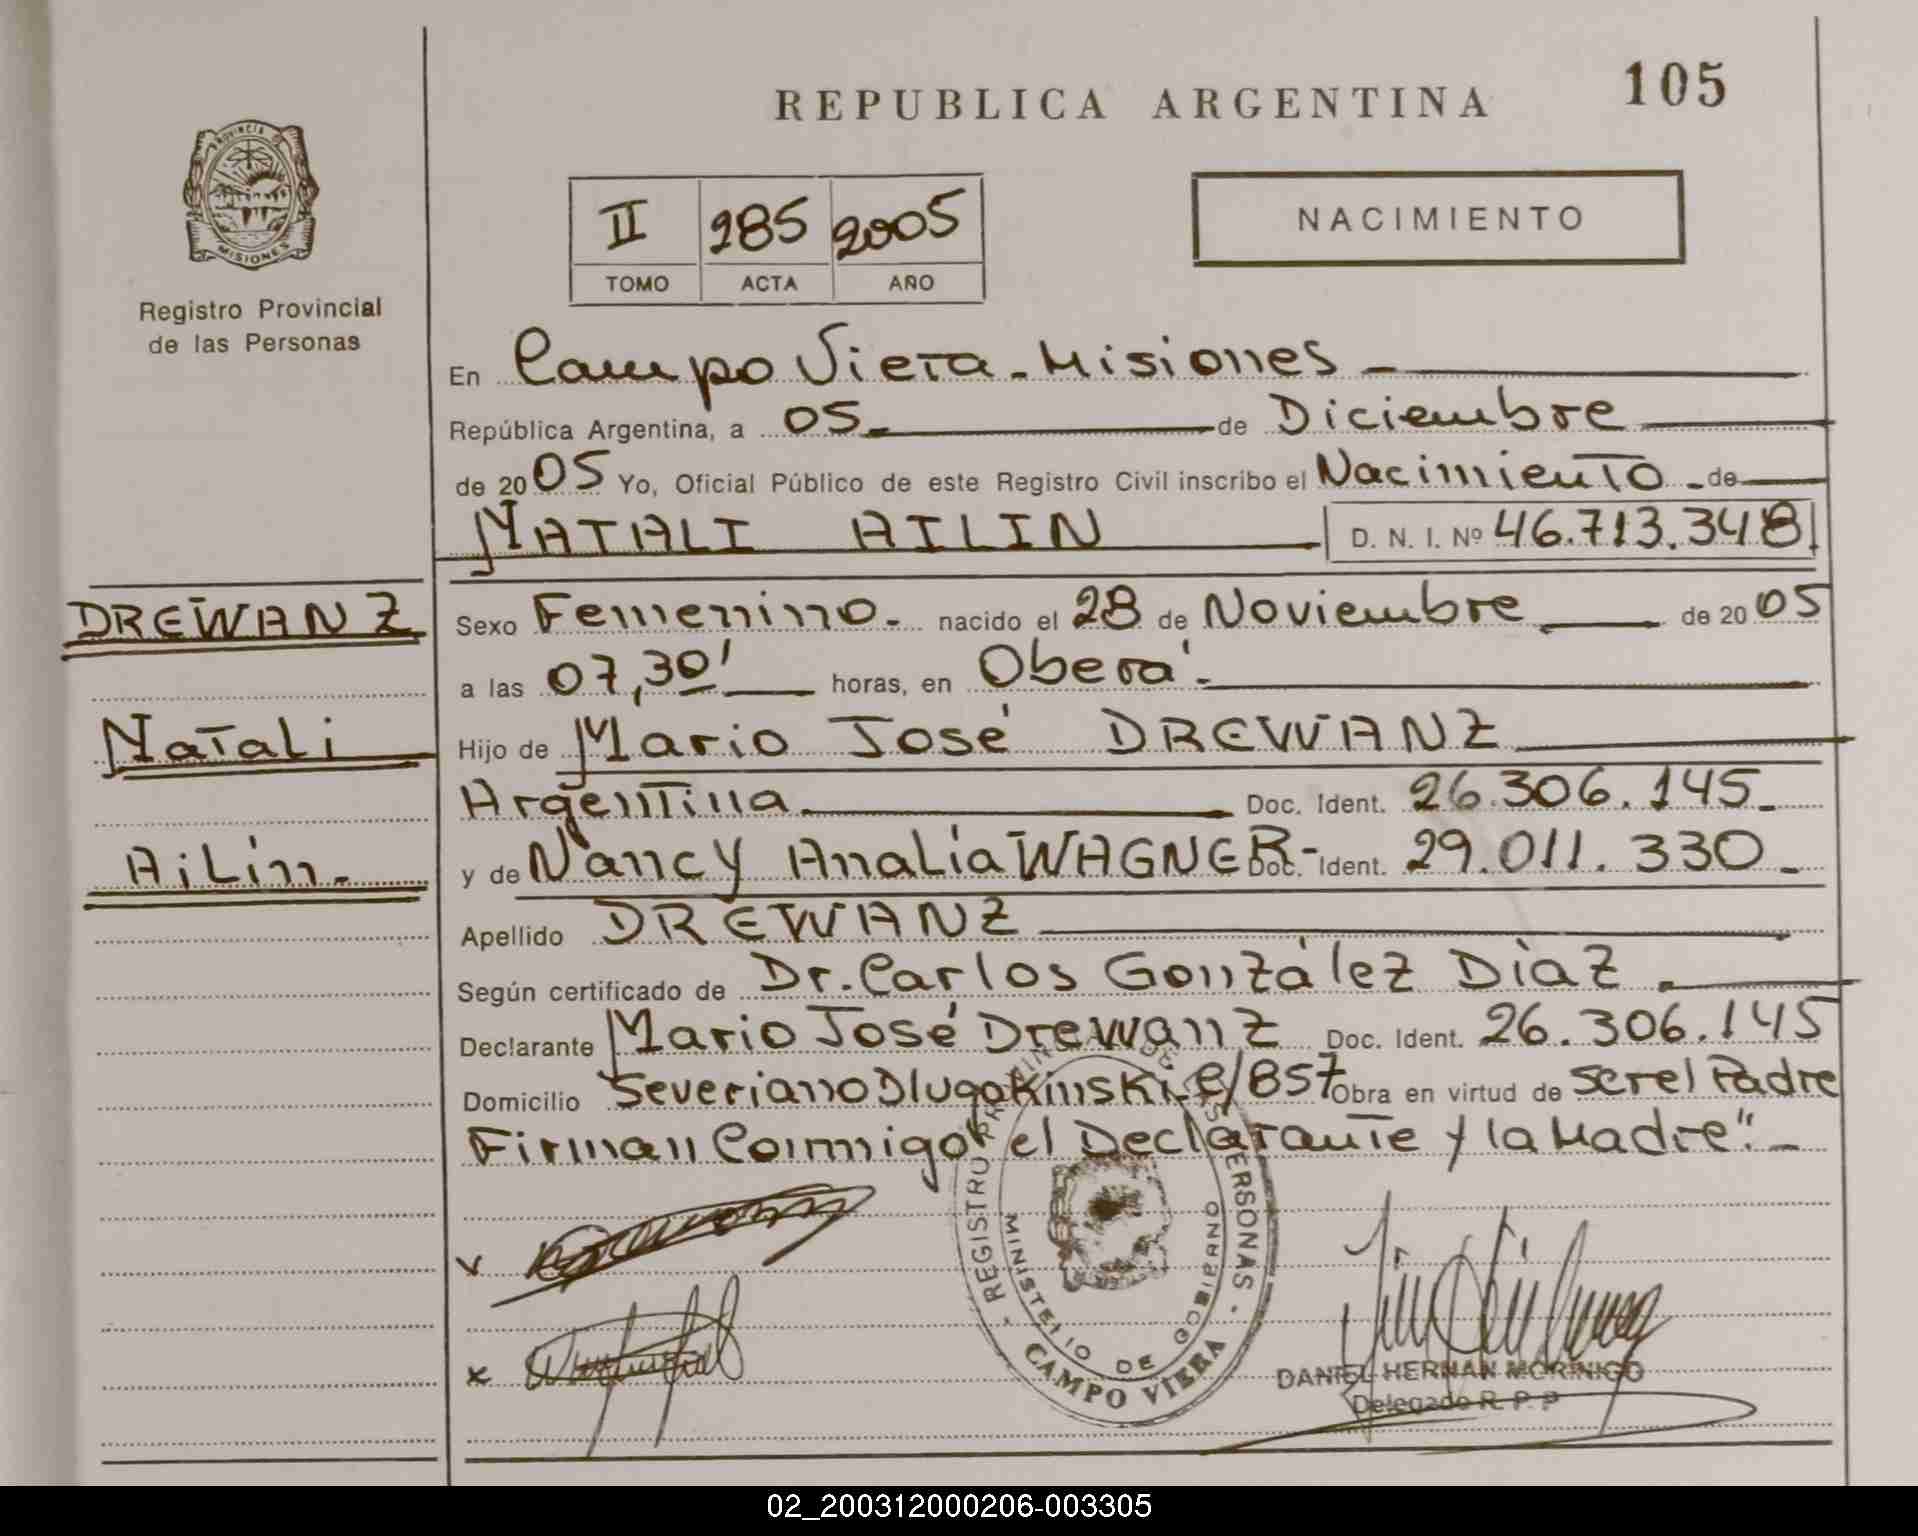 REPUBLICA ARGENTINA
105
PROVINCIA DE
MISIONES
Registro Provincial
de las Personas
II 285 2005
TOMO ACTA AÑO
NACIMIENTO
En Campo Viera - Misiones -
República Argentina, a 05 - de Diciembre
de 2005 Yo, Oficial Público de este Registro Civil inscribo el Nacimiento - de
NATALI AILIN D. N. I. Nº 46.713.348
DREWANZ
Natali
Ailin.-
Sexo Femenino.- nacido el 28 de Noviembre de 2005
a las 07,30' horas, en Oberá.-
Hijo de Mario José DREWANZ
Argentina Doc. Ident. 26.306.145-
y de Nancy Analía WAGNER- Doc. Ident. 29.011.330 -
Apellido DREWANZ
Según certificado de Dr. Carlos González Díaz.
Declarante Mario José Drewanz Doc. Ident. 26.306.145
Domicilio Severiano Dlugokinski C/857 Obra en virtud de ser el Padre
Firman Conmigo "el Declarante y la Madre".-
REGISTRO PROVINCIAL DE LAS PERSONAS
MINISTERIO DE GOBIERNO
CAMPO VIERA
DANIEL HERNAN MORINIGO
Delegado R. P. P
02_200312000206-003305